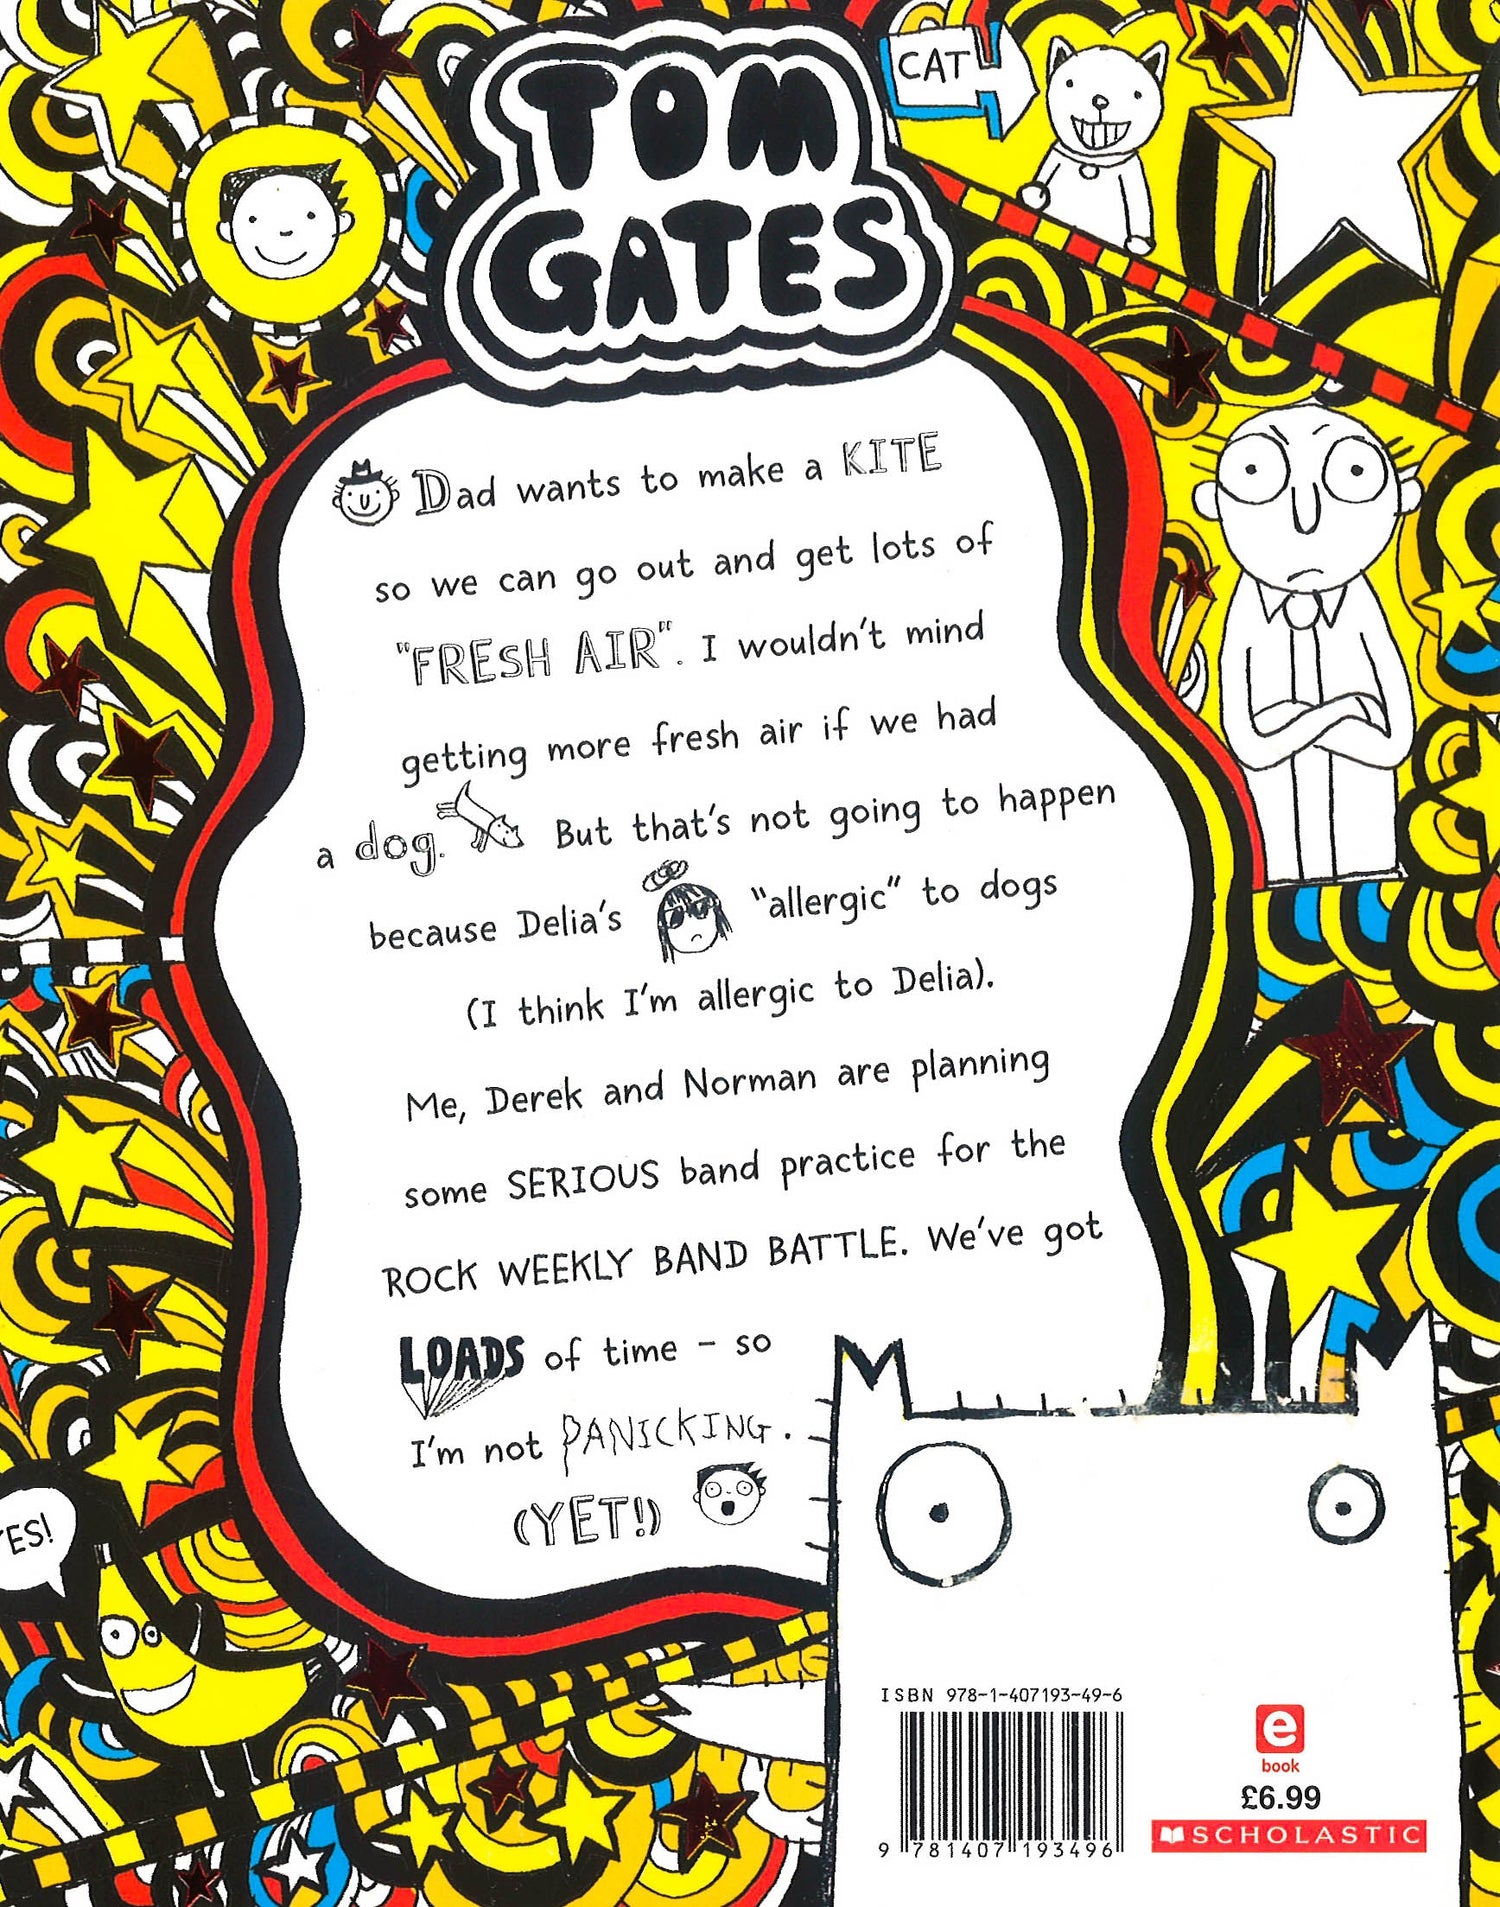 TOM
GATES
CAT
Dad wants to make a KITE
so we can go out and get lots of
"FRESH AIR". I wouldn't mind
getting more fresh air if we had
a dog. But that's not going to happen
because Delia's "allergic" to dogs
(I think I'm allergic to Delia).
Me, Derek and Norman are planning
some SERIOUS band practice for the
ROCK WEEKLY BAND BATTLE. We've got
LOADS of time - so
I'm not PANICKING.
(YET!)
YES!
ISBN 978-1-407193-49-6
9 781407 193496
e
book
£6.99
SCHOLASTIC